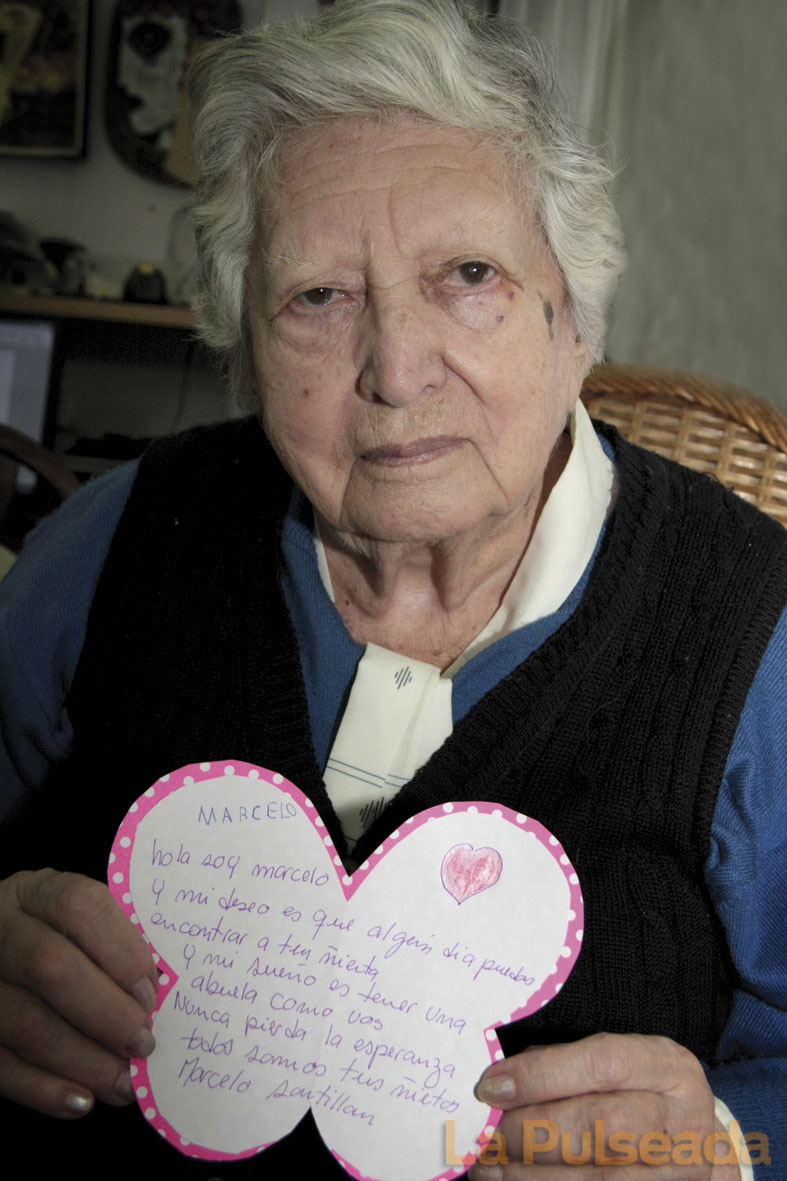 MARCELO
hola soy marcelo
y mi deseo es que algún dia puedas
encontrar a tu ñieta
y mi sueño es tener una
abuela como vos
Nunca pierda la esperanza
todos somos tus ñietos
Marcelo Santillan
La Pulseada